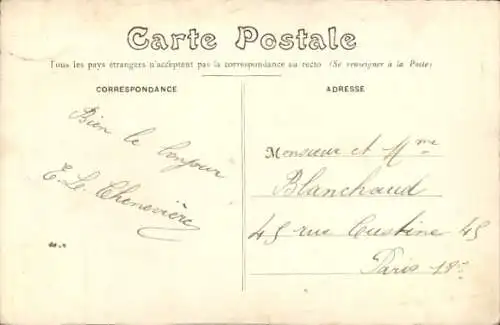 Carte Postale
Tous les pays étrangers n'acceptent pas la correspondance au recto (Se renseigner à la Poste)
CORRESPONDANCE
ADRESSE
Bien le bonjour
E. Le Chenevière
Monsieur et Mme
Blanchaud
45 rue Custine 45
Paris 18e